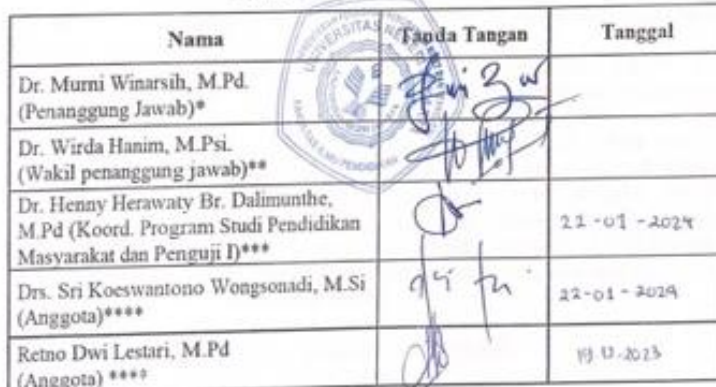 Nama Tanda Tangan Tanggal
Dr. Murni Winarsih, M.Pd.
(Penanggung Jawab)*
Dr. Wirda Hanim, M.Psi.
(Wakil penanggung jawab)**
Dr. Henny Herawaty Br. Dalimunthe,
M.Pd (Koord. Program Studi Pendidikan
Masyarakat dan Penguji I)***
22-01-2024
Drs. Sri Koeswantono Wongsonadi, M.Si
(Anggota)****
22-01-2024
Retno Dwi Lestari, M.Pd
(Anggota) ****
UNIVERSITAS NEGERI
FAKULTAS ILMU PENDIDIKAN